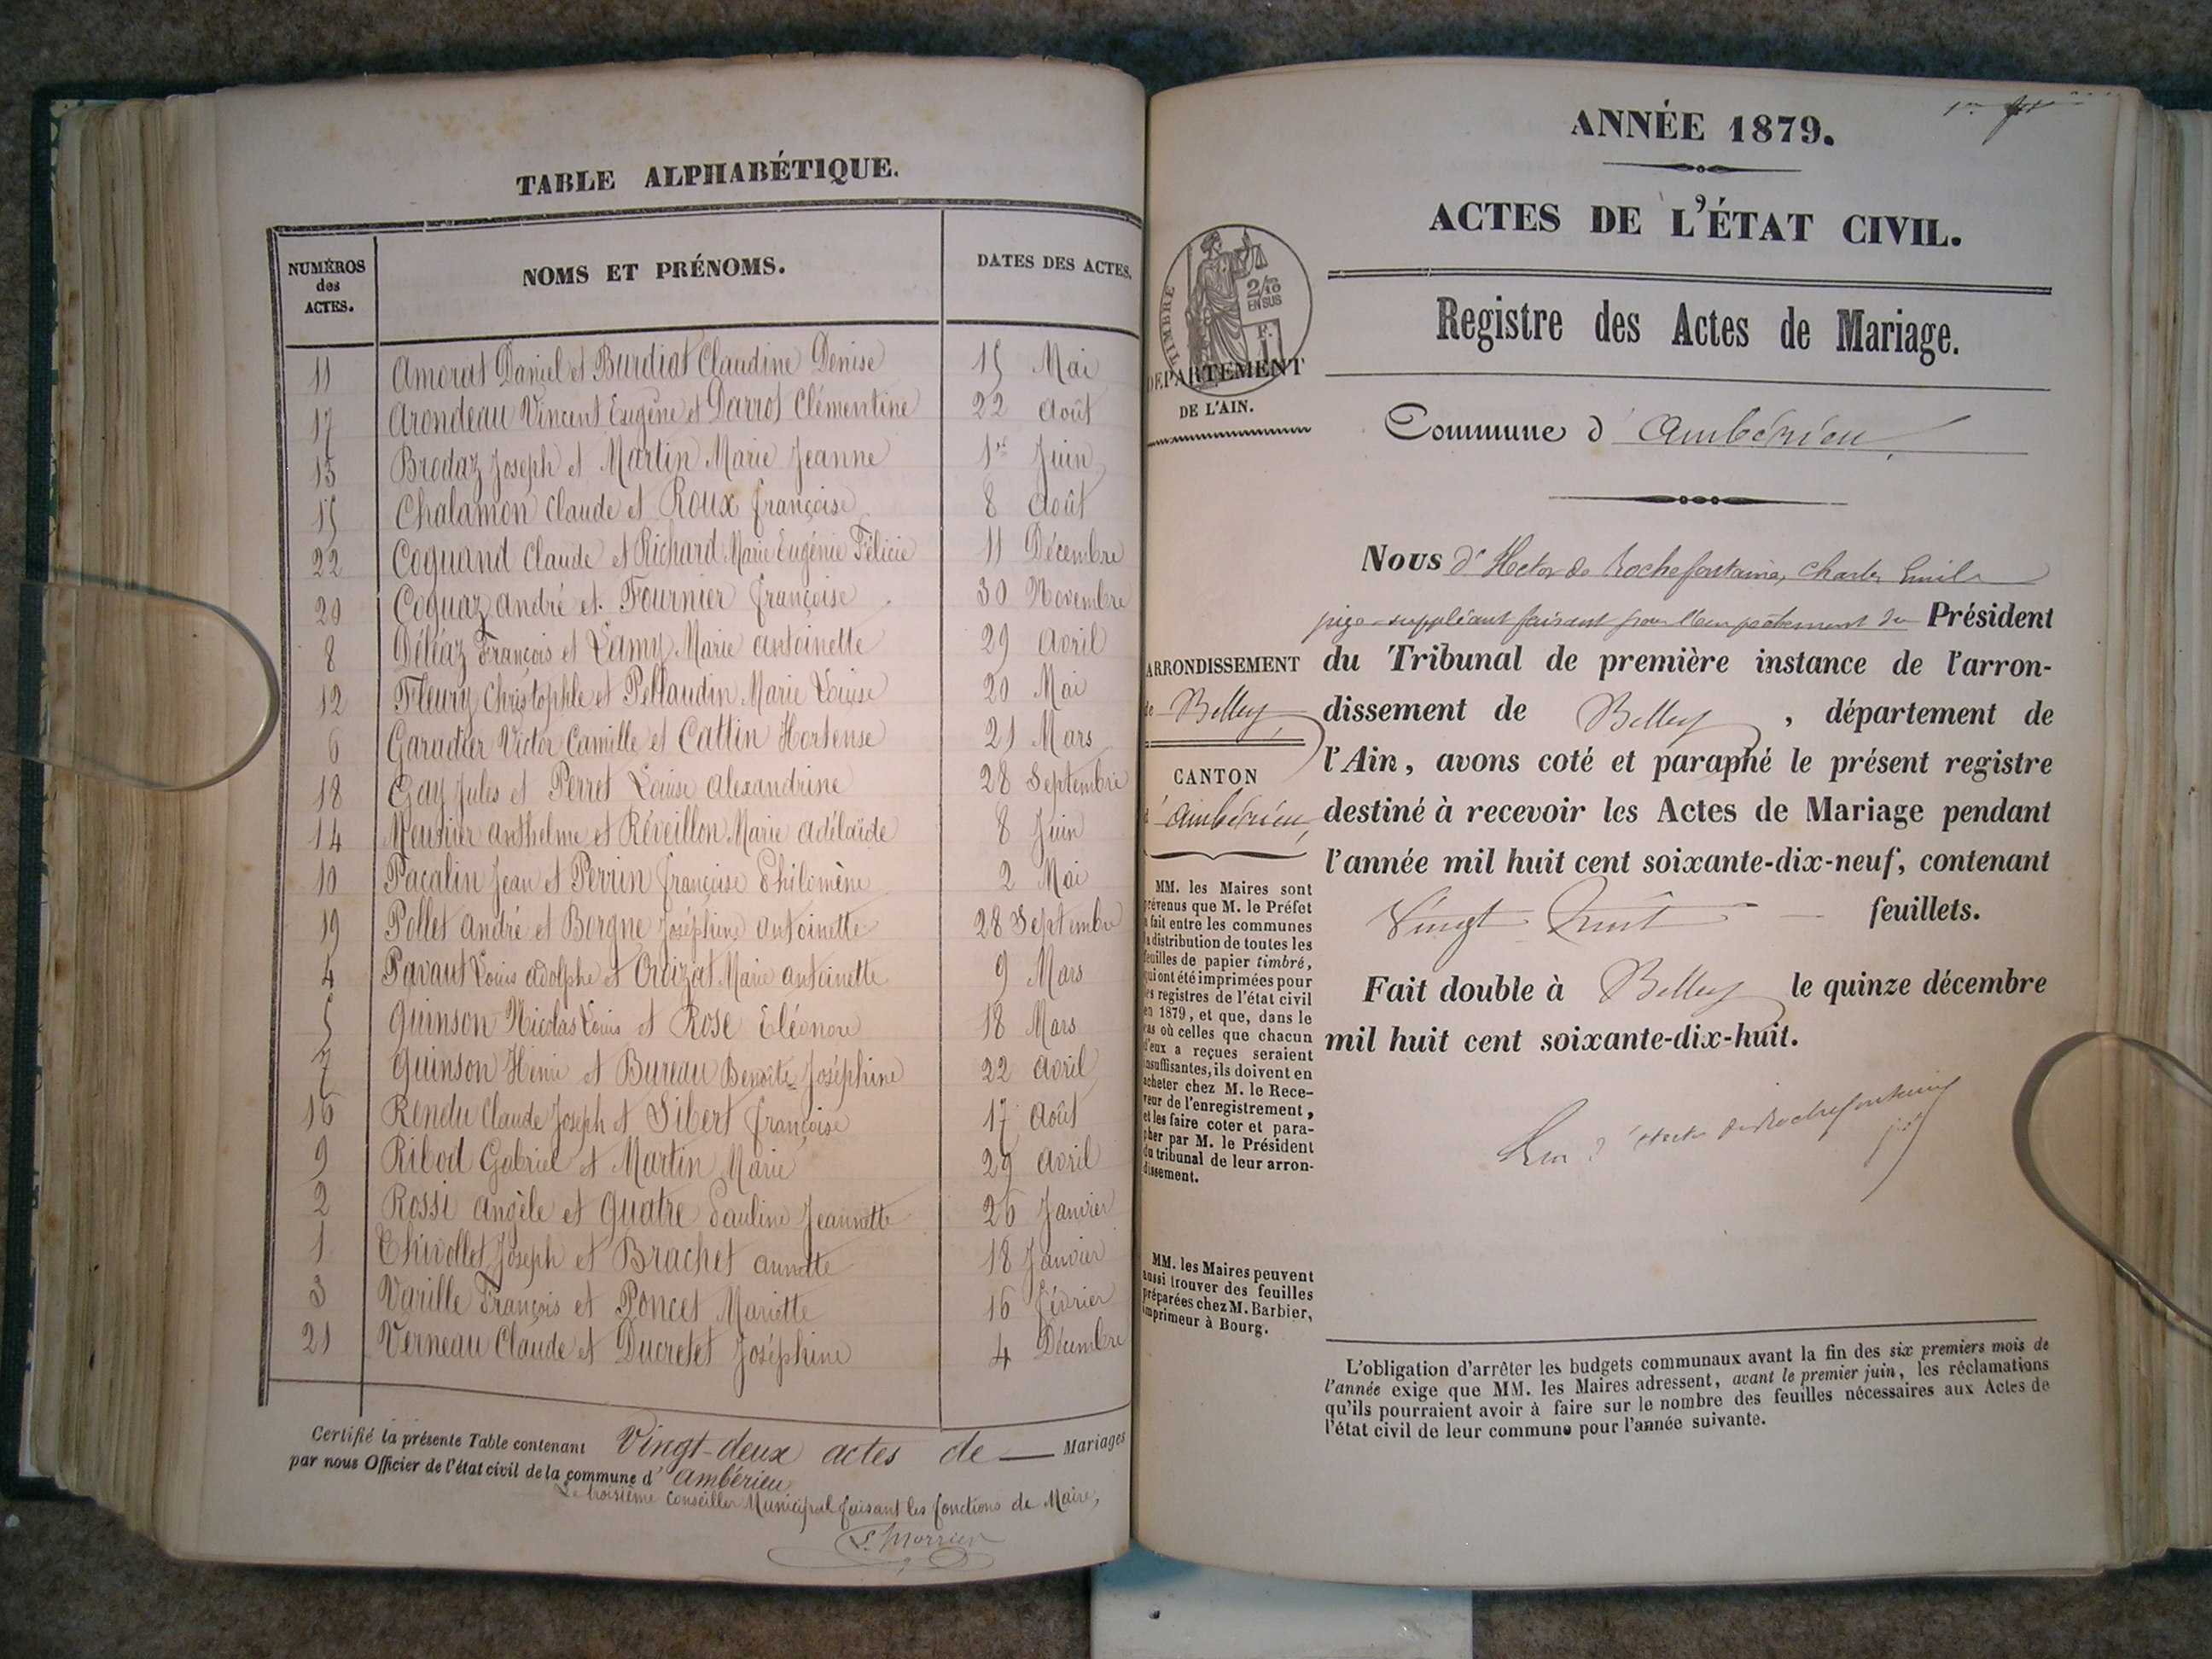 TABLE ALPHABÉTIQUE.
NUMÉROS des ACTES. NOMS ET PRÉNOMS. DATES DES ACTES.
11 Amorat Daniel et Burdiat Claudine Denise 15 Mai
17 Arondeau Vincent Eugène et Darrot Clémentine 22 Août
13 Brodaz Joseph et Martin Marie Jeanne 1er Juin
15 Chalamon Claude et Roux françoise 8 Août
22 Coquand Claude et Richard Marie Eugénie Félicie 11 Décembre
20 Coquaz andré et Fournier françoise 30 Novembre
8 Déléaz François et Lamy Marie antoinette 29 Avril
12 Fleury Christophle et Pellaudin Marie Louise 20 Mai
6 Garadier Victor Camille et Cattin Hortense 21 Mars
18 Gay Jules et Perret Louise Alexandrine 28 Septembre
14 Meunier anthelme et Réveillon Marie adélaïde 8 Juin
10 Pacalin Jean et Perrin françoise Philomène 2 Mai
19 Pollet andré et Borgne Joséphine antoinette 28 Septembre
4 Pavaut Louis adolphe et Marie antoinette 9 Mars
5 Quinson Nicolas Louis et Rose Eléonore 18 Mars
7 Quinson Henri et Bureau Benoîte Joséphine 22 Avril
16 Rendu Claude Joseph et Sibert françoise 17 Août
9 Ribod Gabriel et Martin Marie 29 Avril
2 Rossi Angèle et Quatre Pauline Jeannette 26 Janvier
1 Chivollet Joseph et Brachet annette 18 Janvier
3 Varille François et Poncet Mariette 16 Février
21 Verneau Claude et Ducretet Joséphine 4 Décembre
Certifié la présente Table contenant Vingt-deux actes de — Mariages
par nous Officier de l'état civil de la commune d'Ambérieu
Le troisième Conseiller Municipal faisant les fonctions de Maire,
ANNÉE 1879.
ACTES DE L'ÉTAT CIVIL.
Registre des Actes de Mariage.
TIMBRE
2/10
EN SUS
F.
DÉPARTEMENT
DE L'AIN.
Commune d'Ambérieu
Nous d'Hector de Rochefontaine, Charles Emile
juge-suppléant faisant pour l'empêchement du Président
du Tribunal de première instance de l'arron-
dissement de Belley, département de
l'Ain, avons coté et paraphé le présent registre
destiné à recevoir les Actes de Mariage pendant
l'année mil huit cent soixante-dix-neuf, contenant
Vingt huit feuillets.
Fait double à Belley le quinze décembre
mil huit cent soixante-dix-huit.
ARRONDISSEMENT
de Belley
CANTON
d'Ambérieu
MM. les Maires sont
prévenus que M. le Préfet
a fait entre les communes
la distribution de toutes les
feuilles de papier timbré,
qui ont été imprimées pour
les registres de l'état civil
en 1879, et que, dans le
cas où celles que chacun
d'eux a reçues seraient
insuffisantes, ils doivent en
acheter chez M. le Rece-
veur de l'enregistrement,
et les faire coter et para-
pher par M. le Président
du tribunal de leur arron-
dissement.
MM. les Maires peuvent
aussi trouver des feuilles
préparées chez M. Barbier,
imprimeur à Bourg.
L'obligation d'arrêter les budgets communaux avant la fin des six premiers mois de
l'année exige que MM. les Maires adressent, avant le premier juin, les réclamations
qu'ils pourraient avoir à faire sur le nombre des feuilles nécessaires aux Actes de
l'état civil de leur commune pour l'année suivante.